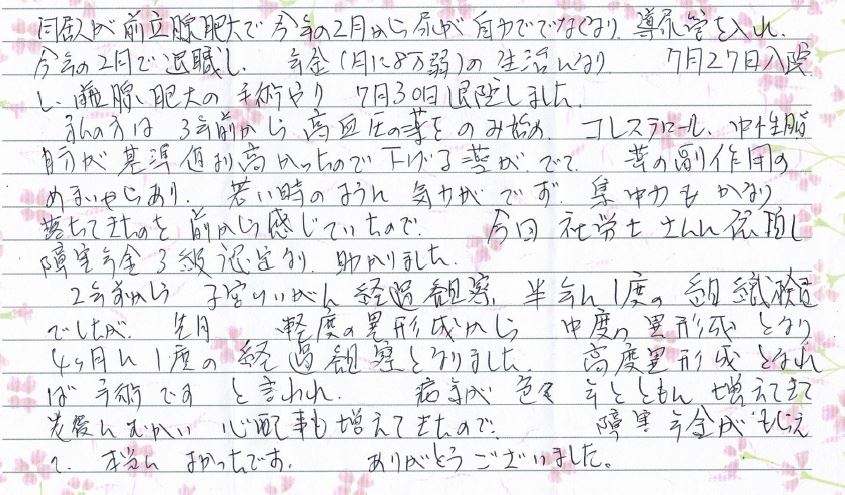 同居人が前立腺肥大で今年の2月から尿が自力ででなくなり、導尿管を入れ、
今年の2月で退職し、年金(月に8万弱)の生活になり 7月27日入院
し、前立腺肥大の手術やり 7月30日退院しました。
私の方は 3年前から 高血圧の薬をのみ始め、コレステロール、中性脂
肪が基準値より高かったので下げる薬が、でて、薬の副作用の
めまいやらあり、若い時のように気力がでず、集中力もかなり
落ちてきたのを前から感じていたので、今回 社労士さんに依頼し
障害年金3級認定なり、助かりました。
2年前から 子宮けいがん経過観察、半年に1度の組織検査
でしたが、先月 軽度の異形成から 中度の異形成となり
4ヶ月に1度の経過観察となりました。高度異形成となれ
ば手術ですと言われ、病気が色々年とともに増えてきて
老後にむかい 心配事も増えてきたので、障害年金がもらえ
て、本当によかったです。ありがとうございました。